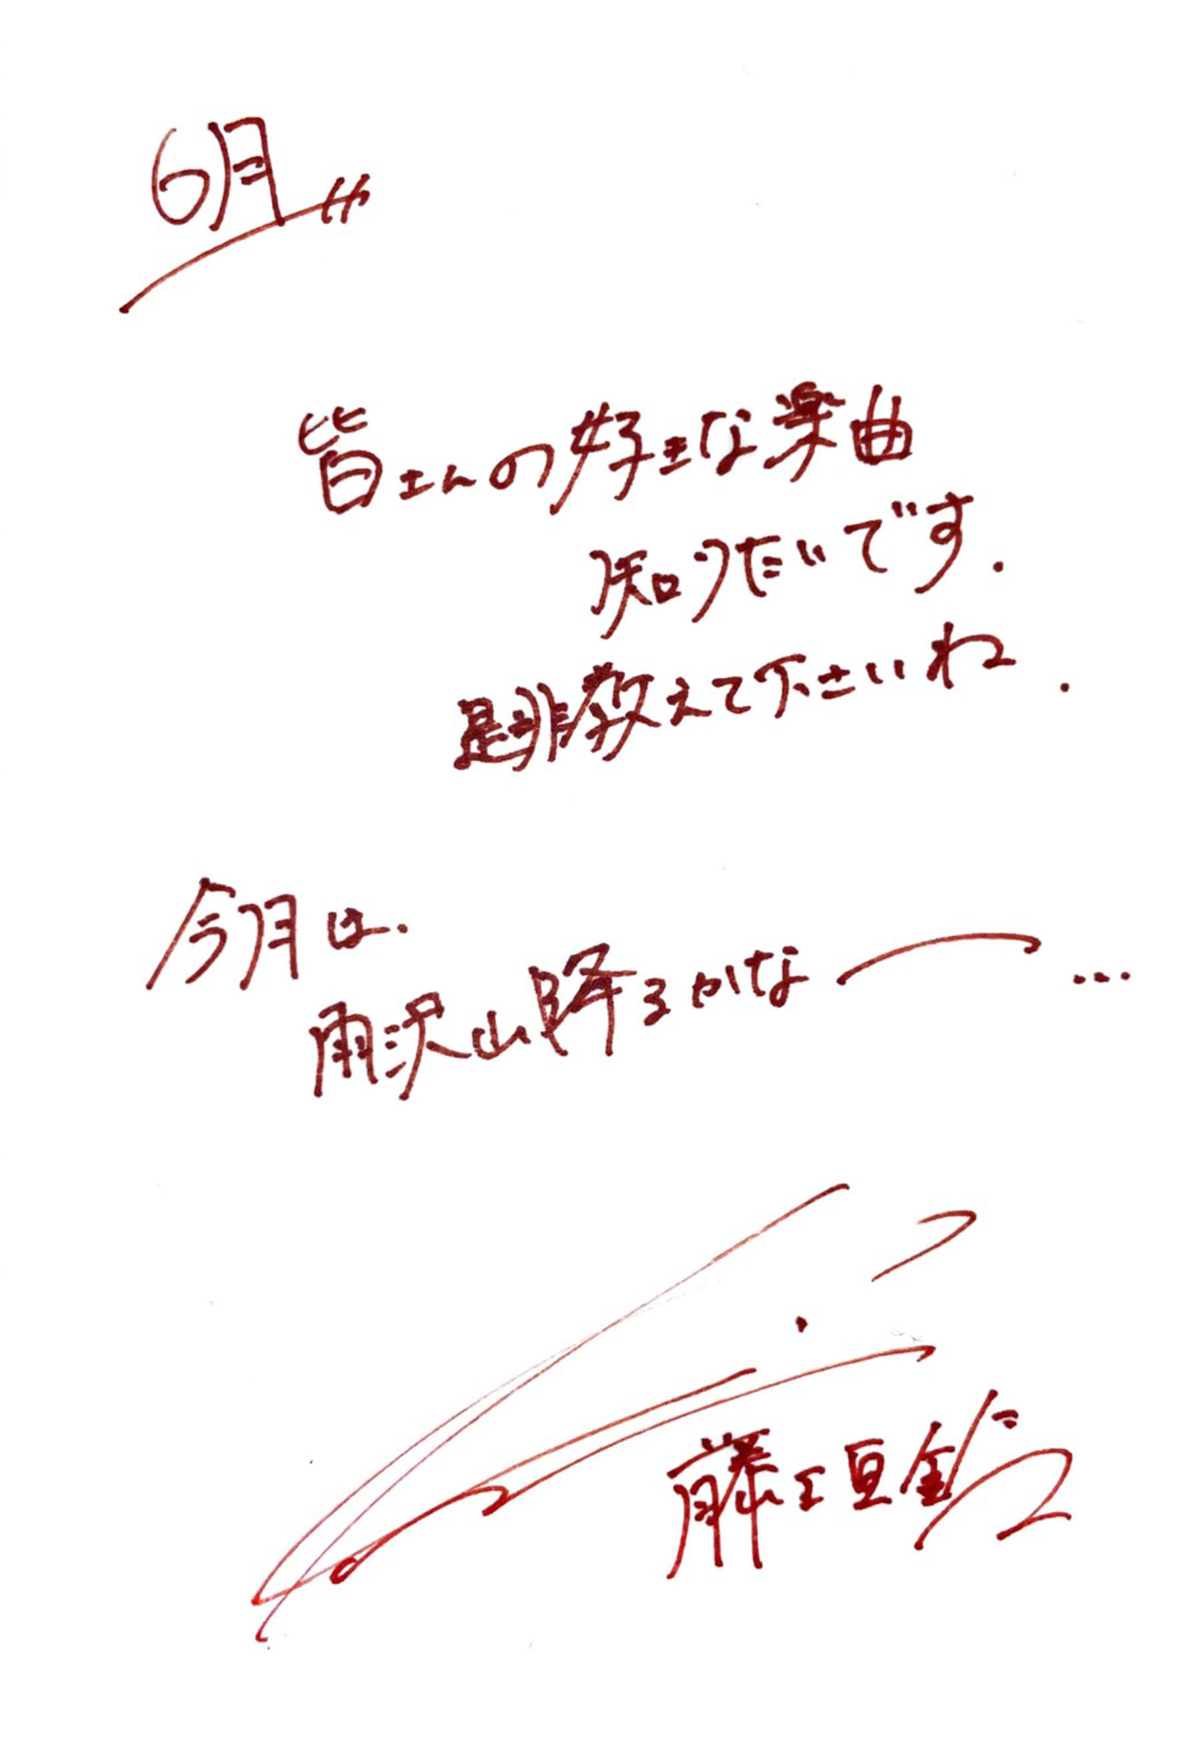 6月
皆さんの好きな楽曲
知りたいです.
是非教えて下さいね.
今月は.
雨沢山降るかなー…
藤江亘鈴